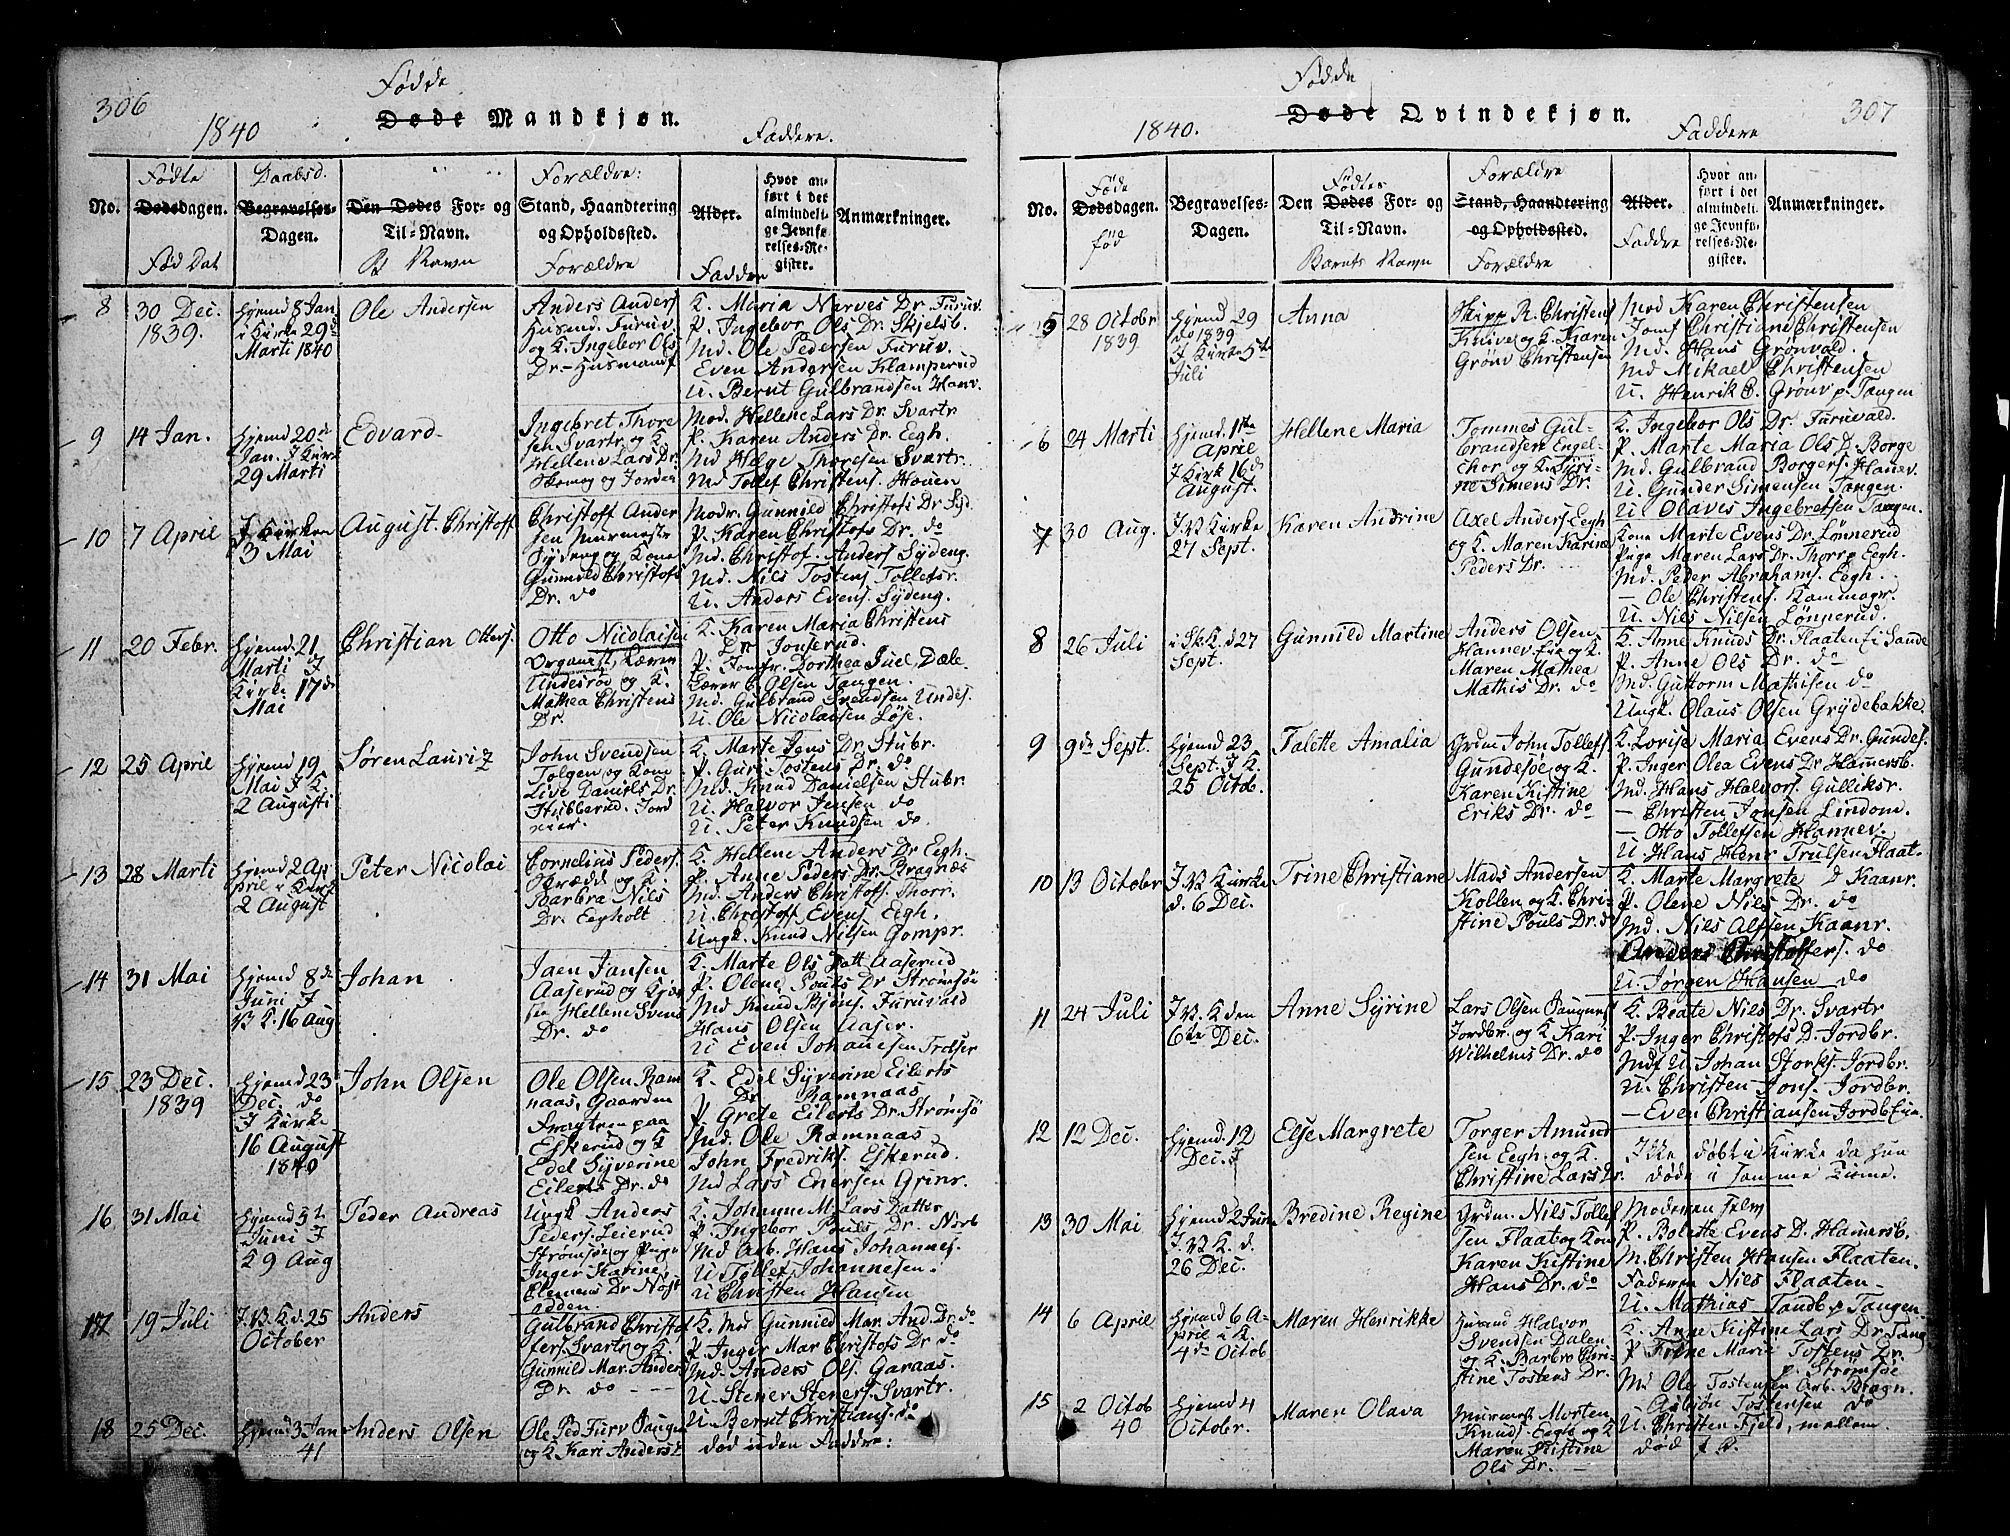 306
Fødde
1840
Døde Mandkjøn.
Faddere.
No.
Fødte
Dødsdagen.
Fød Dat
Daabsd.
Begravelses-
Dagen.
Den Dødes For- og
Til-Navn.
B Navn
Forældre:
Stand, Haandtering
og Opholdssted.
Forældre
Alder.
Faddere
Hvor an-
ført i det
almindeli-
ge Jevnfø-
relses-Re-
gister.
Anmærkninger.
8
30 Dec.
1839.
hjemd 8 Jan
i Kirke 29de
Marti 1840
Ole Andersen
Anders Anders
Husmd. Furuv.
og K. Ingebor Ols
Dr.- Husmandsf
K. Maria Narves Dr. Furuv.
P. Ingebor Ols Dr. Skjelsb.
Md. Ole Pedersen Furuv.
Even Andersen Klamperud
U. Bernt Gulbrandsen Hanv.
9
14 Jan.
hjemd 20de
Jan. I Kirk
29 Marti
Edvard
Ingebret Thore
sen Svartr og K.
Hellene Lars Dr.
Mod. Hellene Lars Dr. Svartr
P. Karen Anders Dr. Eegh.
Md Helge Thoresen Svartr.
Md Tollef Christens. Houen
10
7 April
I Kirken
3 Mai
August Christoff
Christoff Ander
sen Murmester
Sydeng og Kone
Gunnild Christofs
Dr. do
Modr. Gunnild Christofs Dr Syd
P. Karen Christofs Dr. do
Md. Christof. Anders Sydeng.
Md. Nils Tostens Tollefsr.
U. Anders Evens Sydeng.
11
20 Febr.
hjemd 21
Marti I
Kirke 17de
Mai
Christian Otters.
Otto Nicolaisen
Organist, Lærer
Undesrød og K.
Mathea Christens
Dr.
K. Karen Maria Christens
Dr Jonserud.
P. Jomfr. Dorthea Juel, Dale
Lærer C. Olsen Tangen.
Md. Gulbrand Svendsen Undes.
U. Ole Nicolaisen Løse.
12
25 April
hjemd 19
Mai I K.
2 Augusti
Søren Lauritz
John Svendsen
Tolgen og Kone
Live Daniels Dr.
Stubberud. Jord
eier.
K. Marte Jens Dr. Stubr.
P. Guri Tostens Dr. do
Md. Knud Danielsen Stubr.
U. Halvor Jensen do
U. Peter Knudsen do
13
28 Marti
hjemd 2 Ap
pril i Kirk
2 August
Peter Nicolai
Cornelius Peders.
Obrædd og K.
Barbra Nils
Dr. Eegholt
K. Hellene Anders Dr Eegh.
P. Anne Peders Dr. Bragnæs
Md. Anders Christofs. Thorr.
U. Christoff Evens. Eegh.
Ungk. Knud Nilsen Gompr.
14
31 Mai
hjemd 8de
Juni I
V K. 16 Aug
Johan
Jaen Jansen
Aaserud og Kjær
ste Hellene Svens
Dr. do
K. Marte Ols Datt Aaserud
P. Olene Pouls Dr Strømsøe
Md Knud Bjøns. Furuvald
Hans Olsen Aaser.
U Even Johannesen Trolser
15
23 Dec.
1839
hjemd 23
Dec. do
I Kirke
16 August
1840
John Olsen
Ole Olsen Ram
naas, Gaarden
paa
Eskerud og K
Edel Syverine
Eilerts Dr. do
K. Edel Syverine Eilerts
Dr. Ramnaas
P. Grete Eilerts Dr. Strømsø
Md. Ole Ramnaas
John Fredriks. Eskerud.
Md Lars Enersen Grinr.
16
31 Mai
hjemd 5t
Juni I
K 9 Aug
Peder Andreas
Ungk Anders
Peders. Leierud
Strømsøe og Pige
Inger Katrine
Elemens Dr. Nøst
ødden
K. Johanne M Lars Datter
P. Ingebor Pouls Dr. Norb
Md Arb. Hans Johannes.
U Tollef Johannesen.
U Christen Hansen
17
19 Juli
I V K d. 25
October
Anders
Gulbrand Christof
fers. Svartr og K
Gunnild Mar. Anders
Dr. do
K. Md Gunnild Mar. And Dr. do
P. Inger Mar Christofs Dr do
Md. Anders Ols. Garaas.
U. Stener Steners. Svartr.
U. Bernt Christians. do
18
25 Dec.
hjemd 3 Jan
41
Anders Olsen
Ole Ped Furv
og K Kari Anders D
død uden Faddre:
307
Fødde
1840.
Døde Qvindekjøn.
Faddere
No.
Føde
Dødsdagen.
fød
Begravelses-
Dagen.
Fødtes
Den Dødes For- og
Til-Navn.
Barnets Navn
Forældre
Stand, Haandtering
og Opholdssted.
Forældre
Alder.
Faddre
Hvor an-
ført i det
almindeli-
ge Jevnfø-
relses-Re-
gister.
Anmærkninger.
5
28 Octobr
1839
hjemd 29
do 1839
I Kirke 5te
Juli
Anna
Skipp R. Christens
Knive og K. Karen
Grønv Christensen
Mod Karen Christensen
Jomf Christiane Christensen
Md. Hans Grønvald.
Md Mikael Christensen
U. Henrik C. Grønv p Tangen
6
24 Marti
hjemd. 1ste
April
I Kirk 16de
August.
Hellene Maria
Tommes Gul-
brandsen Engel-
chor og K. Syri-
ne Simens Dr.
K. Ingebor Ols Dr. Furuvald.
P. Marte Maria Ols D. Borge
Md. Gulbrand Borgers. Hanev.
U. Gunder Simensen Tangen.
U Olaves Ingebretsen Tangen.
7
30 Aug.
I V Kirke
27 Sept.
Karen Andrine
Axel Anders Eegh
og K. Maren Karine
Peders Dr.
Kone Marte Evens Dr. Lønnerud
Pige Maren Lars Dr. Thorrp Eegh.
Md. Peder Abrahams. Eegh.
— Ole Christens. Kammegr.
U. Nils Nilsen Lønnerud.
8
26 Juli
i Sk. K. d 27
Sept.
Gunnild Martine
Anders Olsen
Hannev Eie og K.
Maren Mathea
Mathis Dr. do
K. Anne Knuds Dr. Flaaten i Sande
P. Anne Ols Dr. do
Md. Guttorm Mathisen do
Ungk. Olaus Olsen Grydebakke.
9
9de Sept.
hjemd 23
Sept. I K.
25 Octob.
Talette Amalia
Grdm John Tollefs
Gundesøe og K.
Karen Kistine
Eriks Dr. do
K. Lovise Maria Evens Dr. Gundes.
P. Inger Olea Evens Dr Hamersb.
Md. Hans Halvors. Gulliksr.
— Christen Jonsen Lindom.
— Otto Tollefsen Hannev.
U. Hans Henr Trulsen Flaat.
10
13 October
I V Kirke
d. 6 Dec.
Trine Christiane
Mads Andersen
Kollen og K. Chri-
stine Pouls Dr. d
K. Marte Margrete D Kaanr.
P. Olene Nils Dr. do
Md. Nils Alfsen Kaanr.
Anders Christoffers. do
U. Jørgen Hansen do
11
24 Juli
I V. K den
6te Dec.
Anne Syrine
Lars Olsen
Jordbr. og K Kari
Wilhelms Dr. do
K. Beate Nils Dr. Svartr
P. Inger Christofs D. Jordbr.
Indf U. Johan Storks. Jordbr.
U. Christen Jons. Jordbr.
— Even Christiansen Jordb Eie.
12
12 Dec.
hjemd. 12
Dec.
Else Margrete
Torger Amund
sen Eegh. og K.
Christine Lars Dr.
Ikke døbt i Kirke da hun
døde i samme Time.
13
30 Mai
hjemd 2 Juni
I. V K. d.
26 Dec.
Bredine Regine
Grdm. Nils Tollef
sen Flaat og Kon
Karen Kistine
Hans Dr. do
Moderen selv
P. Bolette Evens D. Hamersb.
M. Christen Hansen Flaaten.
Faderen Nils Flaaten
U. Mathias Tandb p Tangen
14
6 April
hjemd 6 A-
pril i K.
4de Octob
Maren Henrikke
Husmd Halvor
Svendsen Dalen
og K. Barbro Chri-
stine Tostens Dr.
K. Anne Kistine Lars Dr Tang
P. Trine Marie Tostens Dr.
Strømsøe
Md Ole Tostensen Arb. Bragn.
Asbjøn Tostensen do
U. Christen Fjeld, mellem
15
2 Octob
40
hjemd 4
Octobr.
Maren Olava
Murmest Morten
Knuds. Eegh og K
Maren Kistine
Ols Dr.
død f D.